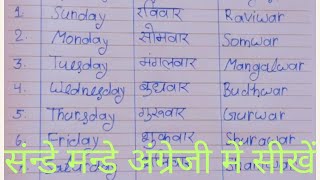 1. Sunday रविवार Raviwar
2. Monday सोमवार Somwar
3. Tuesday मंगलवार Mangalwar
4. Wednesday बुधवार Budhwar
5. Thursday गुरूवार Gurwar
6. Friday शुक्रवार Shurawar
संन्डे मन्डे अंग्रेजी में सीखें